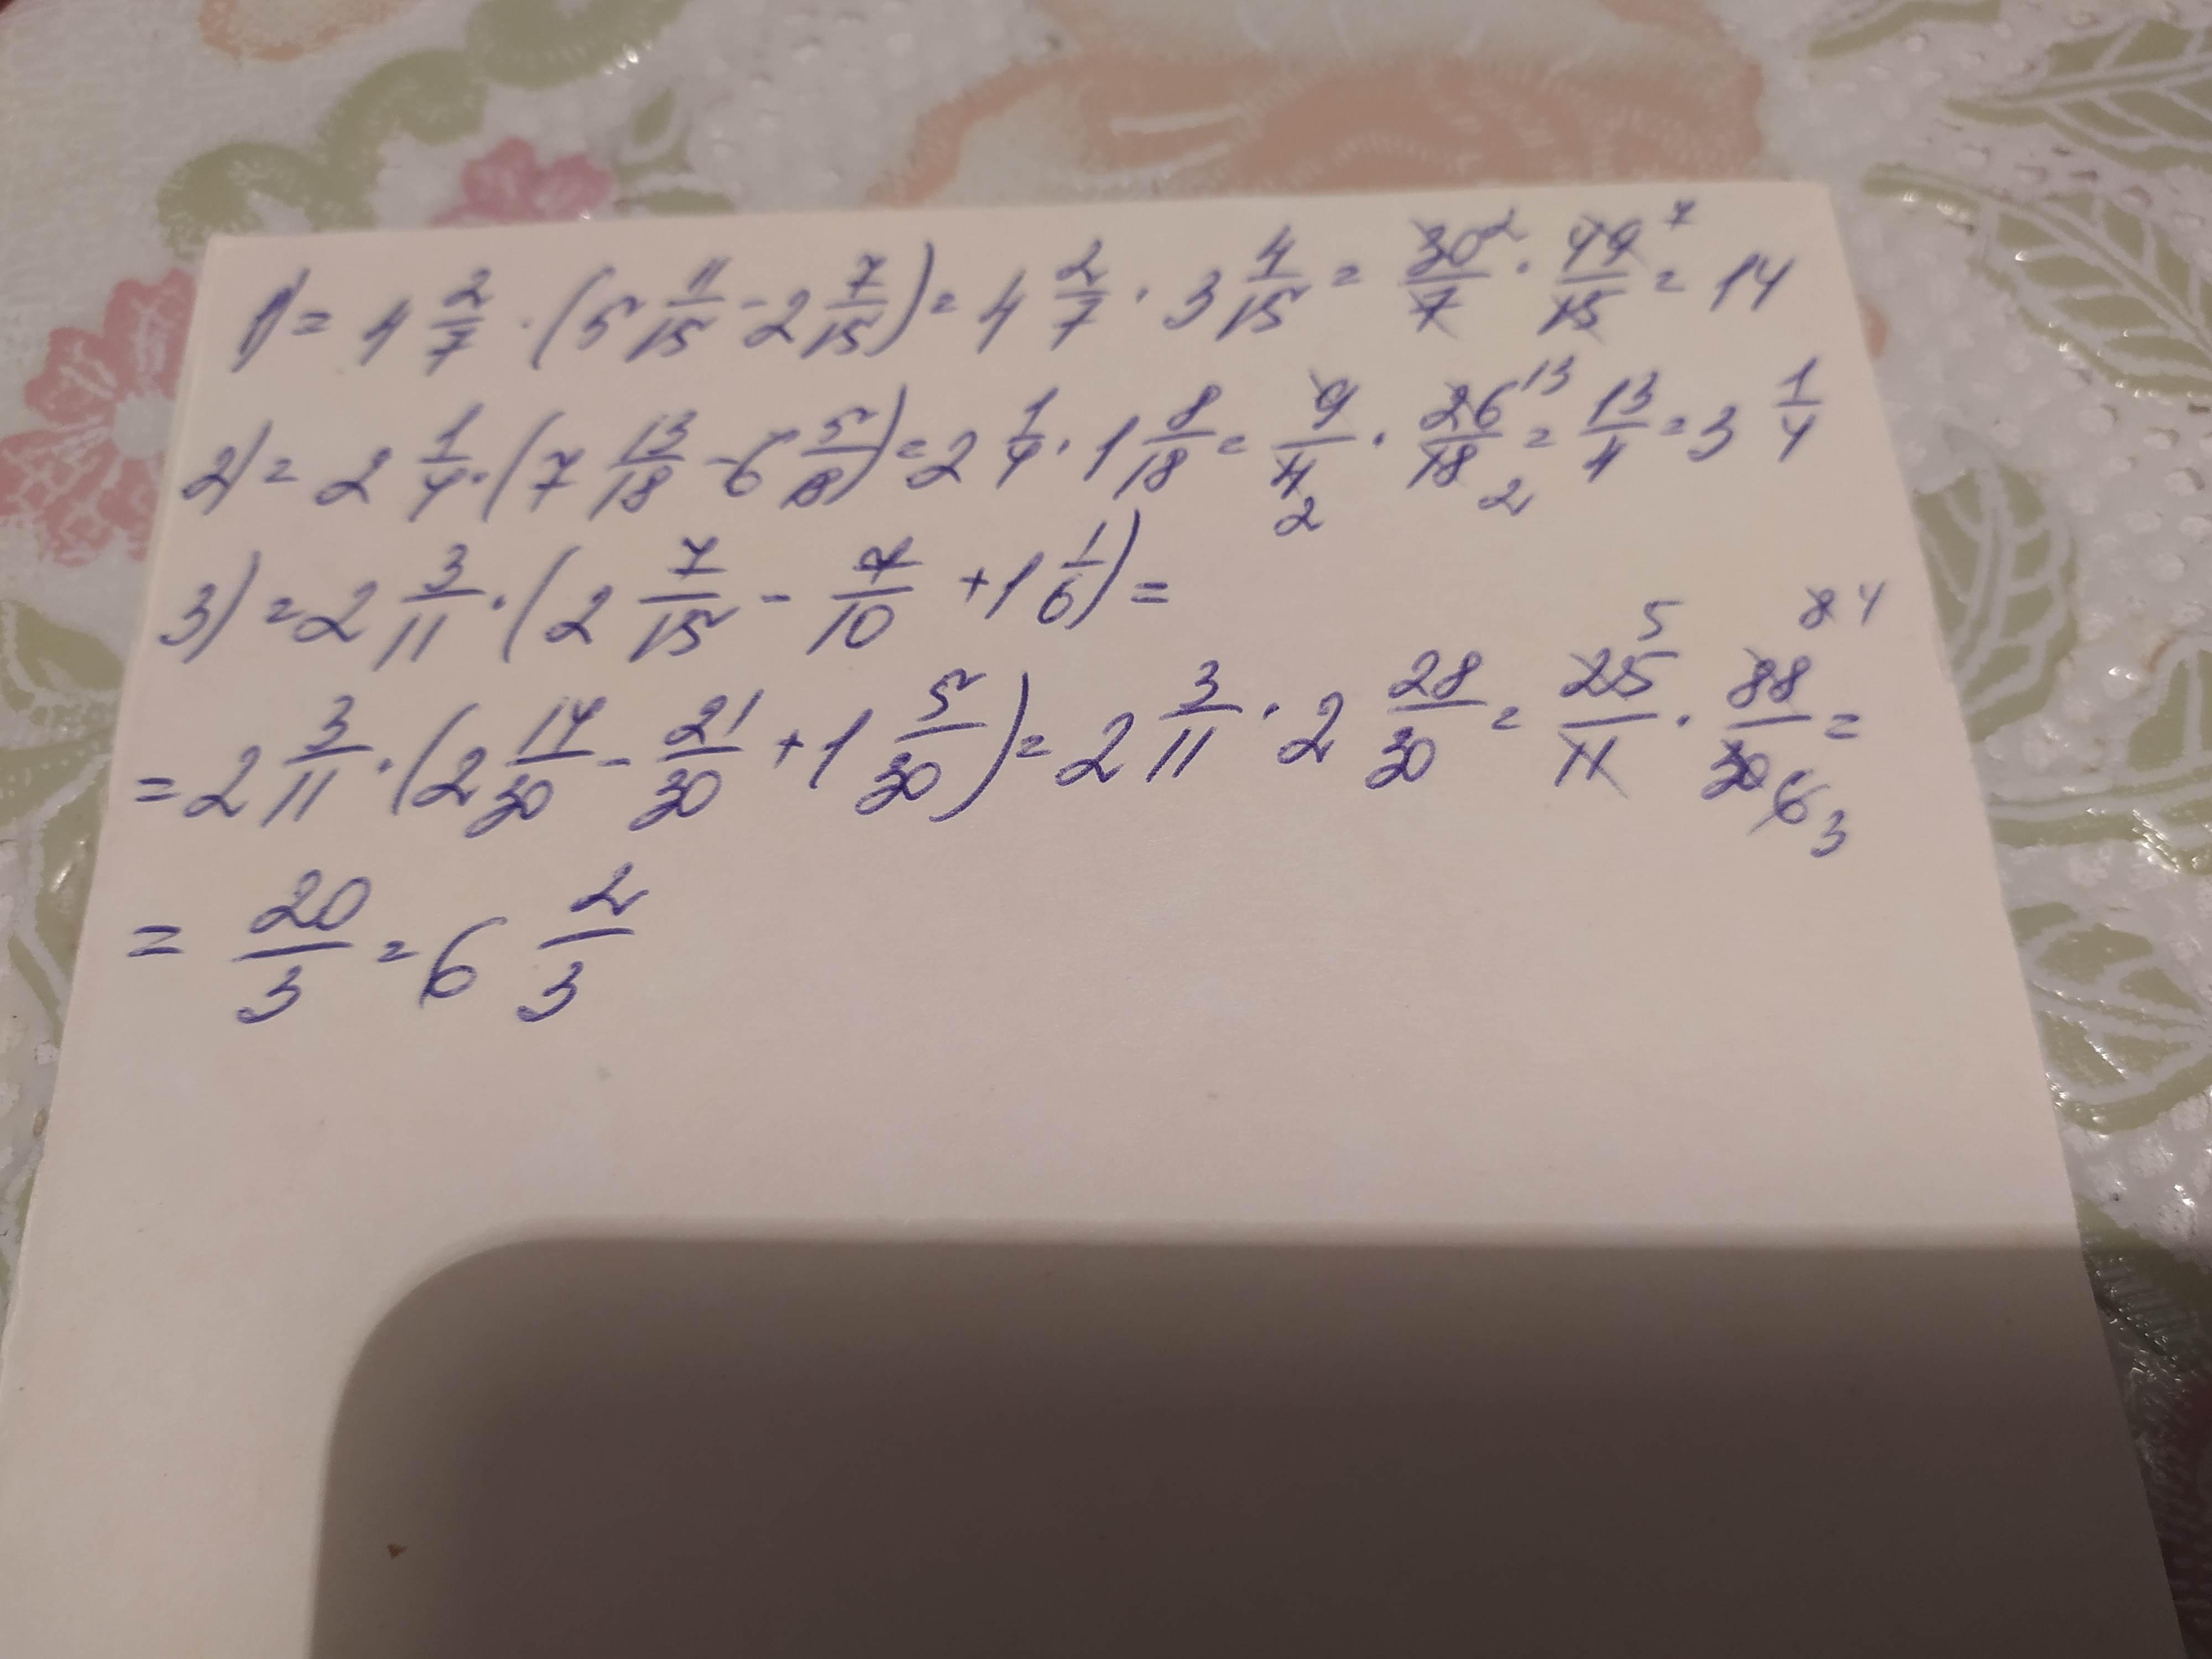 1) = 4 2/7 · (5 11/15 - 2 7/15) = 4 2/7 · 3 4/15 = 30 2/7 · 49 7/15 = 14
2) = 2 1/4 · (7 13/18 - 6 5/18) = 2 1/4 · 1 8/18 = 9/4 2 · 26 13/18 2 = 13/4 = 3 1/4
3) = 2 3/11 · (2 7/15 - 7/10 + 1 1/6) =
= 2 3/11 · (2 14/30 - 21/30 + 1 5/30) = 2 3/11 · 2 28/30 = 25 5/11 · 88 8 4/30 6 3 =
= 20/3 = 6 2/3